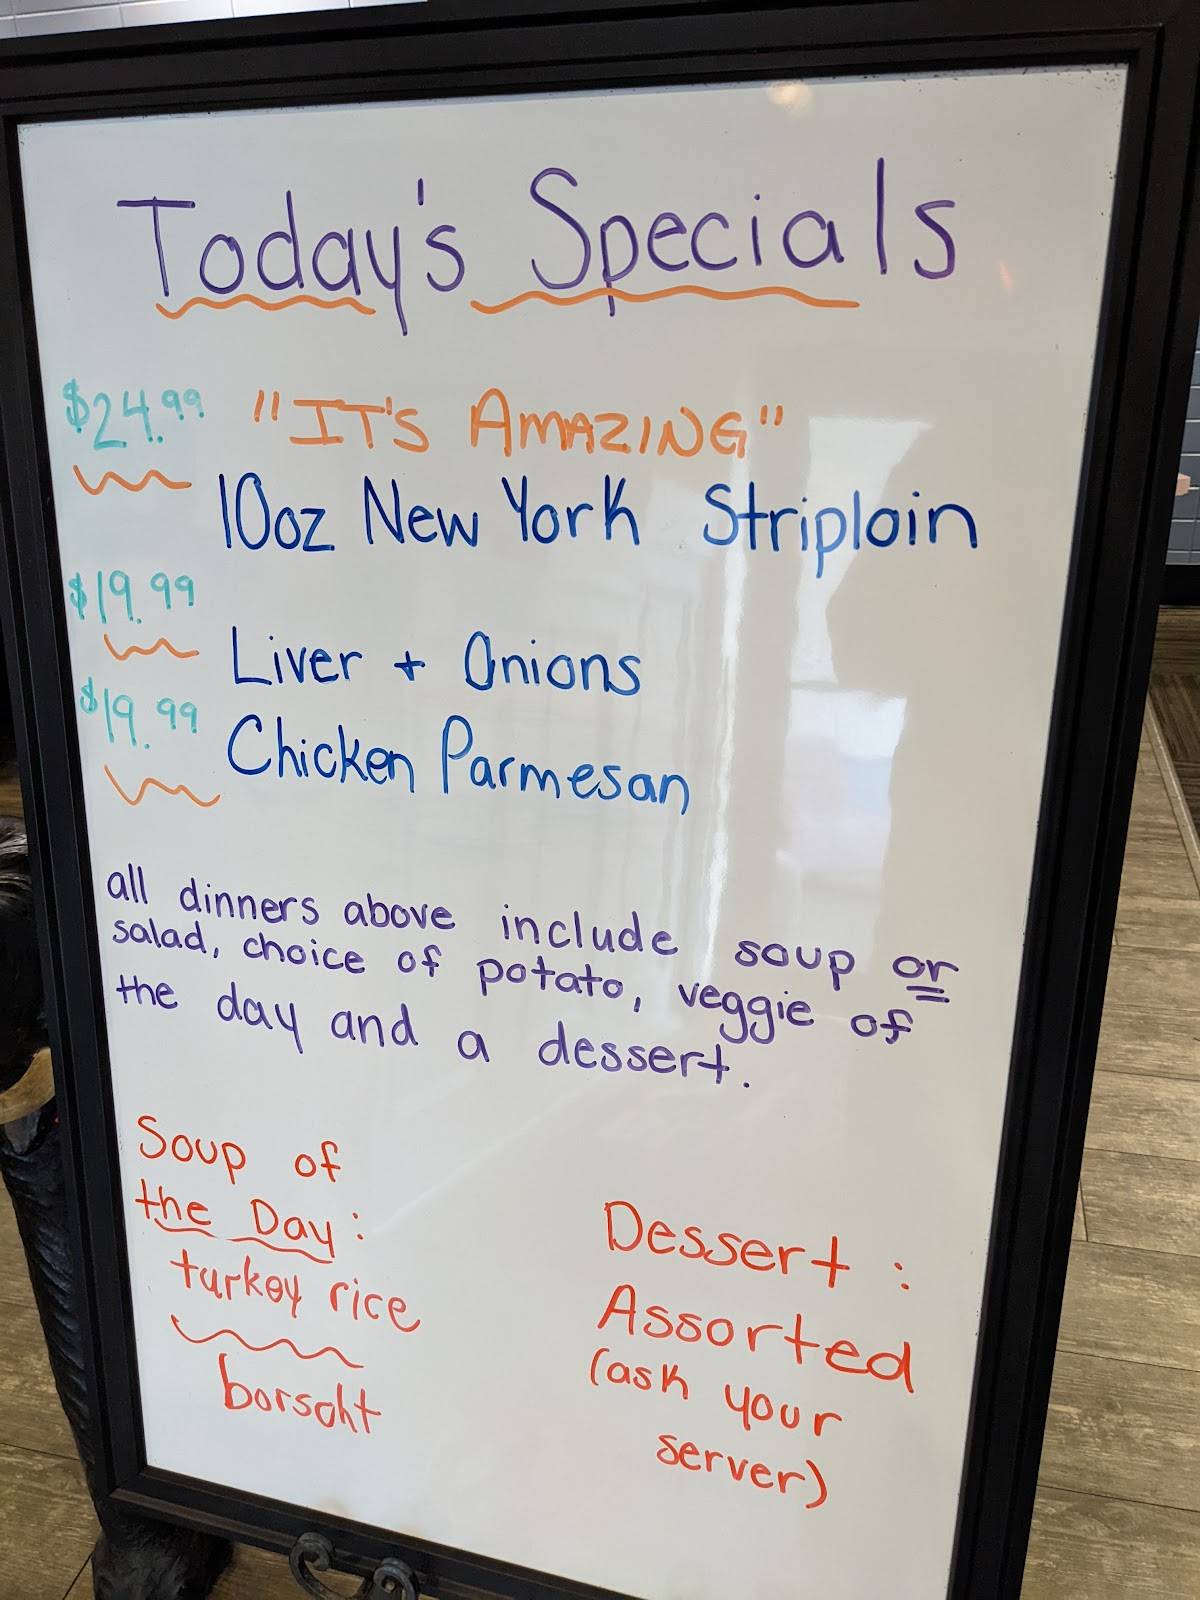 Today's Specials
$24.99 "IT'S AMAZING"
10oz New York Striploin
$19.99
Liver + Onions
$19.99
Chicken Parmesan
all dinners above include soup or
salad, choice of potato, veggie of
the day and a dessert.
Soup of
the Day:
turkey rice
borscht
Dessert:
Assorted
(ask your
server)